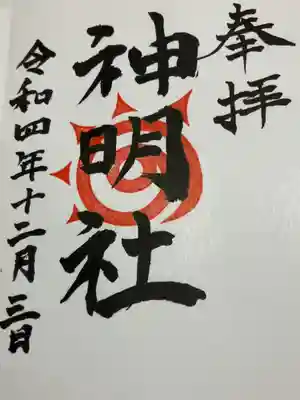 奉拝
神明社
令和四年十二月三日